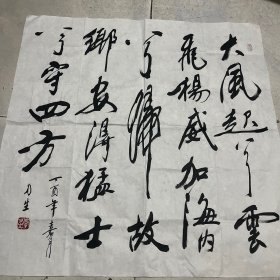 大风起兮雲
飛楊威加海内
兮歸故
鄉安得猛士
兮守四方
丁酉年